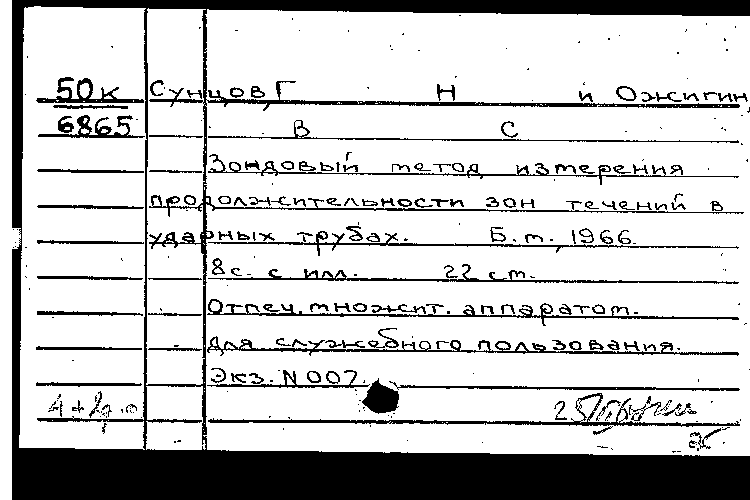 50к Сунцов, Г Н и Ожигин,
6865 В С
Зондовый метод измерения
продолжительности зон течений в
ударных трубах. Б.м., 1966.
8с. с илл. 22 см.
Отпеч. множит. аппаратом.
Для служебного пользования.
Экз. N 007.